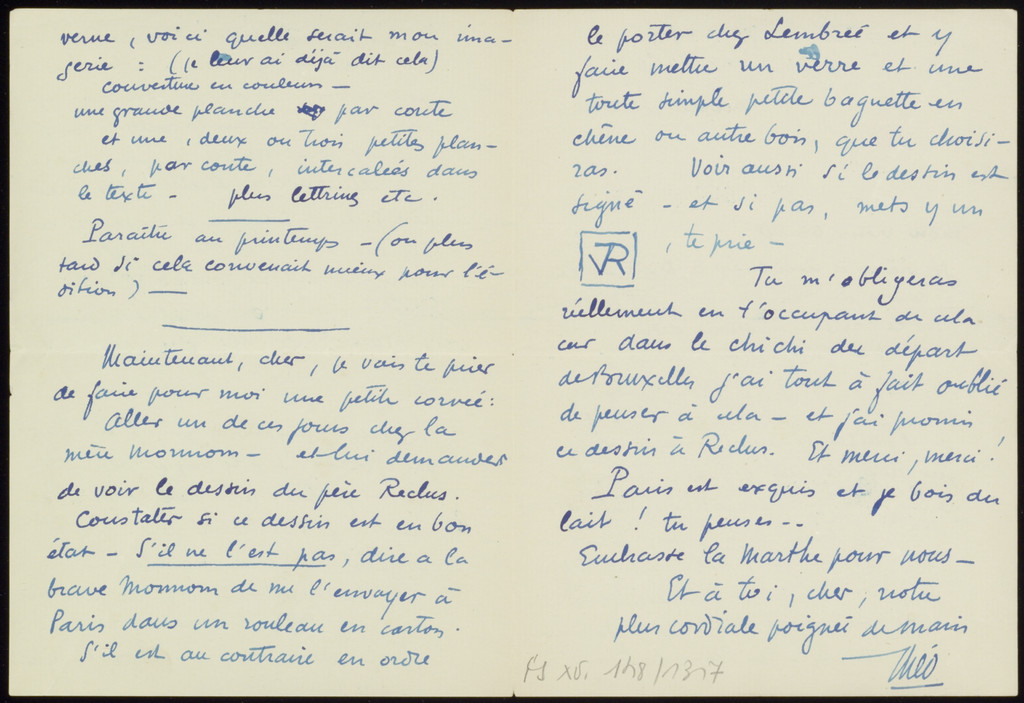 verne, voici quelle serait mon ima-
gerie : (je leur ai déjà dit cela)
couverture en couleurs —
une grande planche par conte
et une, deux ou trois petites plan-
ches, par conte, intercalées dans
le texte - plus lettrines etc.
Paraître au printemps — (ou plus
tard si cela convenait mieux pour l'é-
dition) —
Maintenant, cher, je vais te prier
de faire pour moi une petite corvée :
Aller un de ces jours chez la
mère Monnom — et lui demander
de voir le dessin du père Reclus.
Constater si ce dessin est en bon
état — S'il ne l'est pas, dire a la
brave Monnom de me l'envoyer à
Paris dans un rouleau en carton.
S'il est au contraire en ordre
le porter chez Lembrée et y
faire mettre un verre et une
toute simple petite baguette en
chêne ou autre bois, que tu choisi-
ras. Voir aussi si le dessin est
signé - et si pas, mets y un
VR , te prie —
Tu m'obligeras
réellement en t'occupant de cela
car dans le chichi du départ
de Bruxelles j'ai tout à fait oublié
de penser à cela — et j'ai promis
ce dessin à Reclus. Et merci, merci !
Paris est exquis et je bois du
lait ! tu penses --
Embrasse la Marthe pour nous —
Et à toi, cher, notre
plus cordiale poignée de main
Théo
FS XV. 148/1317